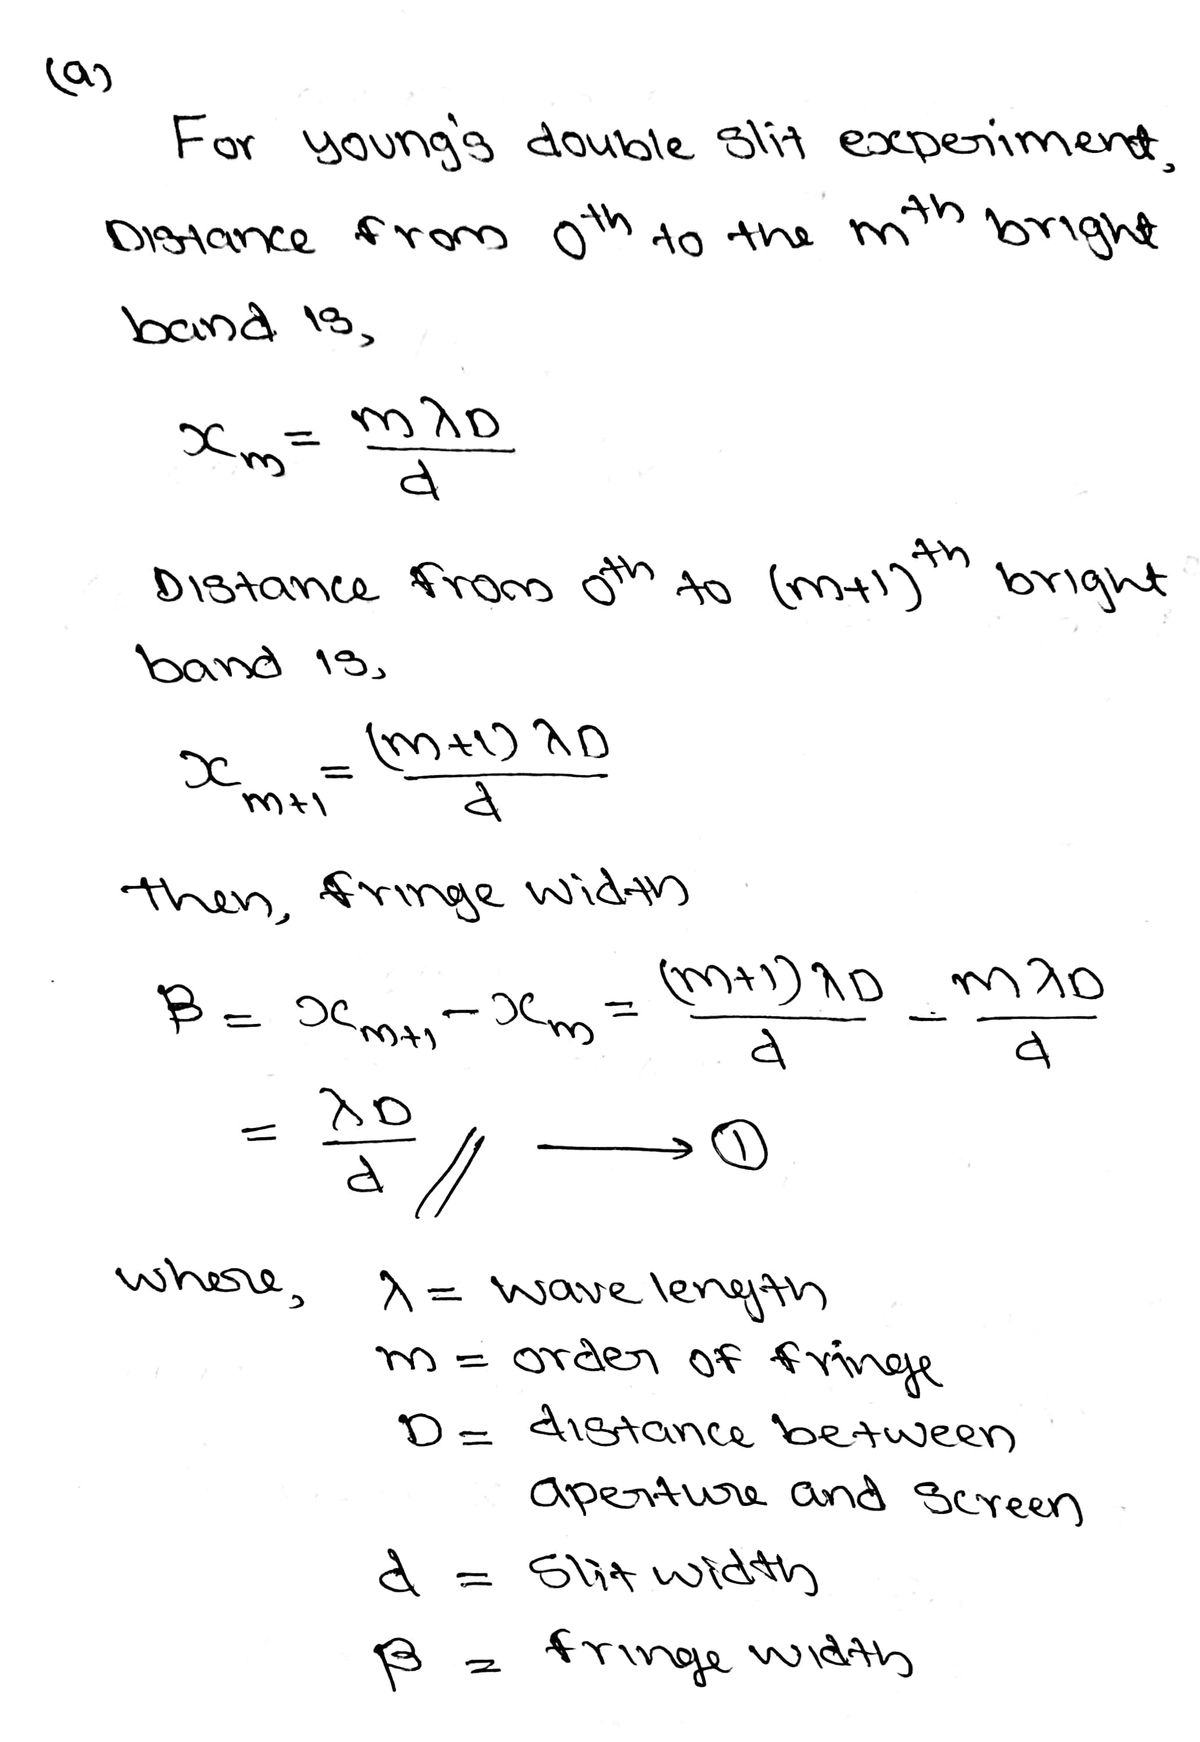 (a)
For young's double slit experiment,
Distance from 0th to the mth bright
band is,
x_m = mλD / d
Distance from 0th to (m+1)th bright
band is,
x_m+1 = (m+1) λD / d
then, fringe width
β = x_m+1 - x_m = (m+1) λD / d - mλD / d
= λD / d // ⟶ ①
where, λ = wave length
m = order of fringe
D = distance between
aperture and screen
d = slit width
β = fringe width